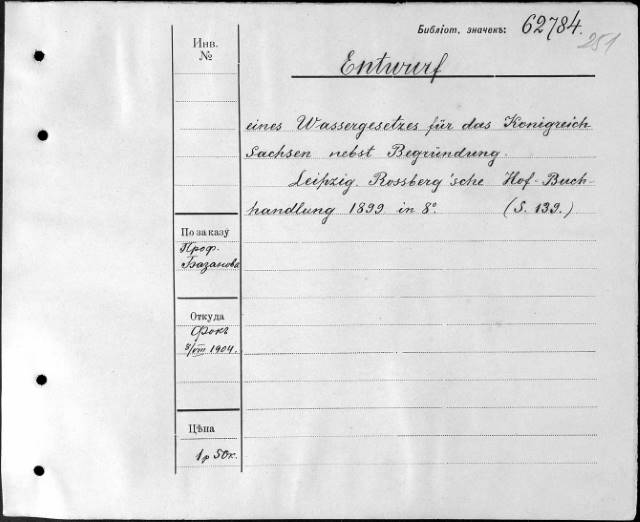 Библіот. значекъ: 62784.
251
Инв.
№
Entwurf
eines Wassergesetzes für das Königreich
Sachsen nebst Begründung.
Leipzig. Rossberg'sche Hof-Buch-
handlung 1899 in 8°. (S. 139.)
По заказу
Проф.
Базанова
Откуда
Фокъ
8/VIII 1904.
Цѣна
1 р 50 к.